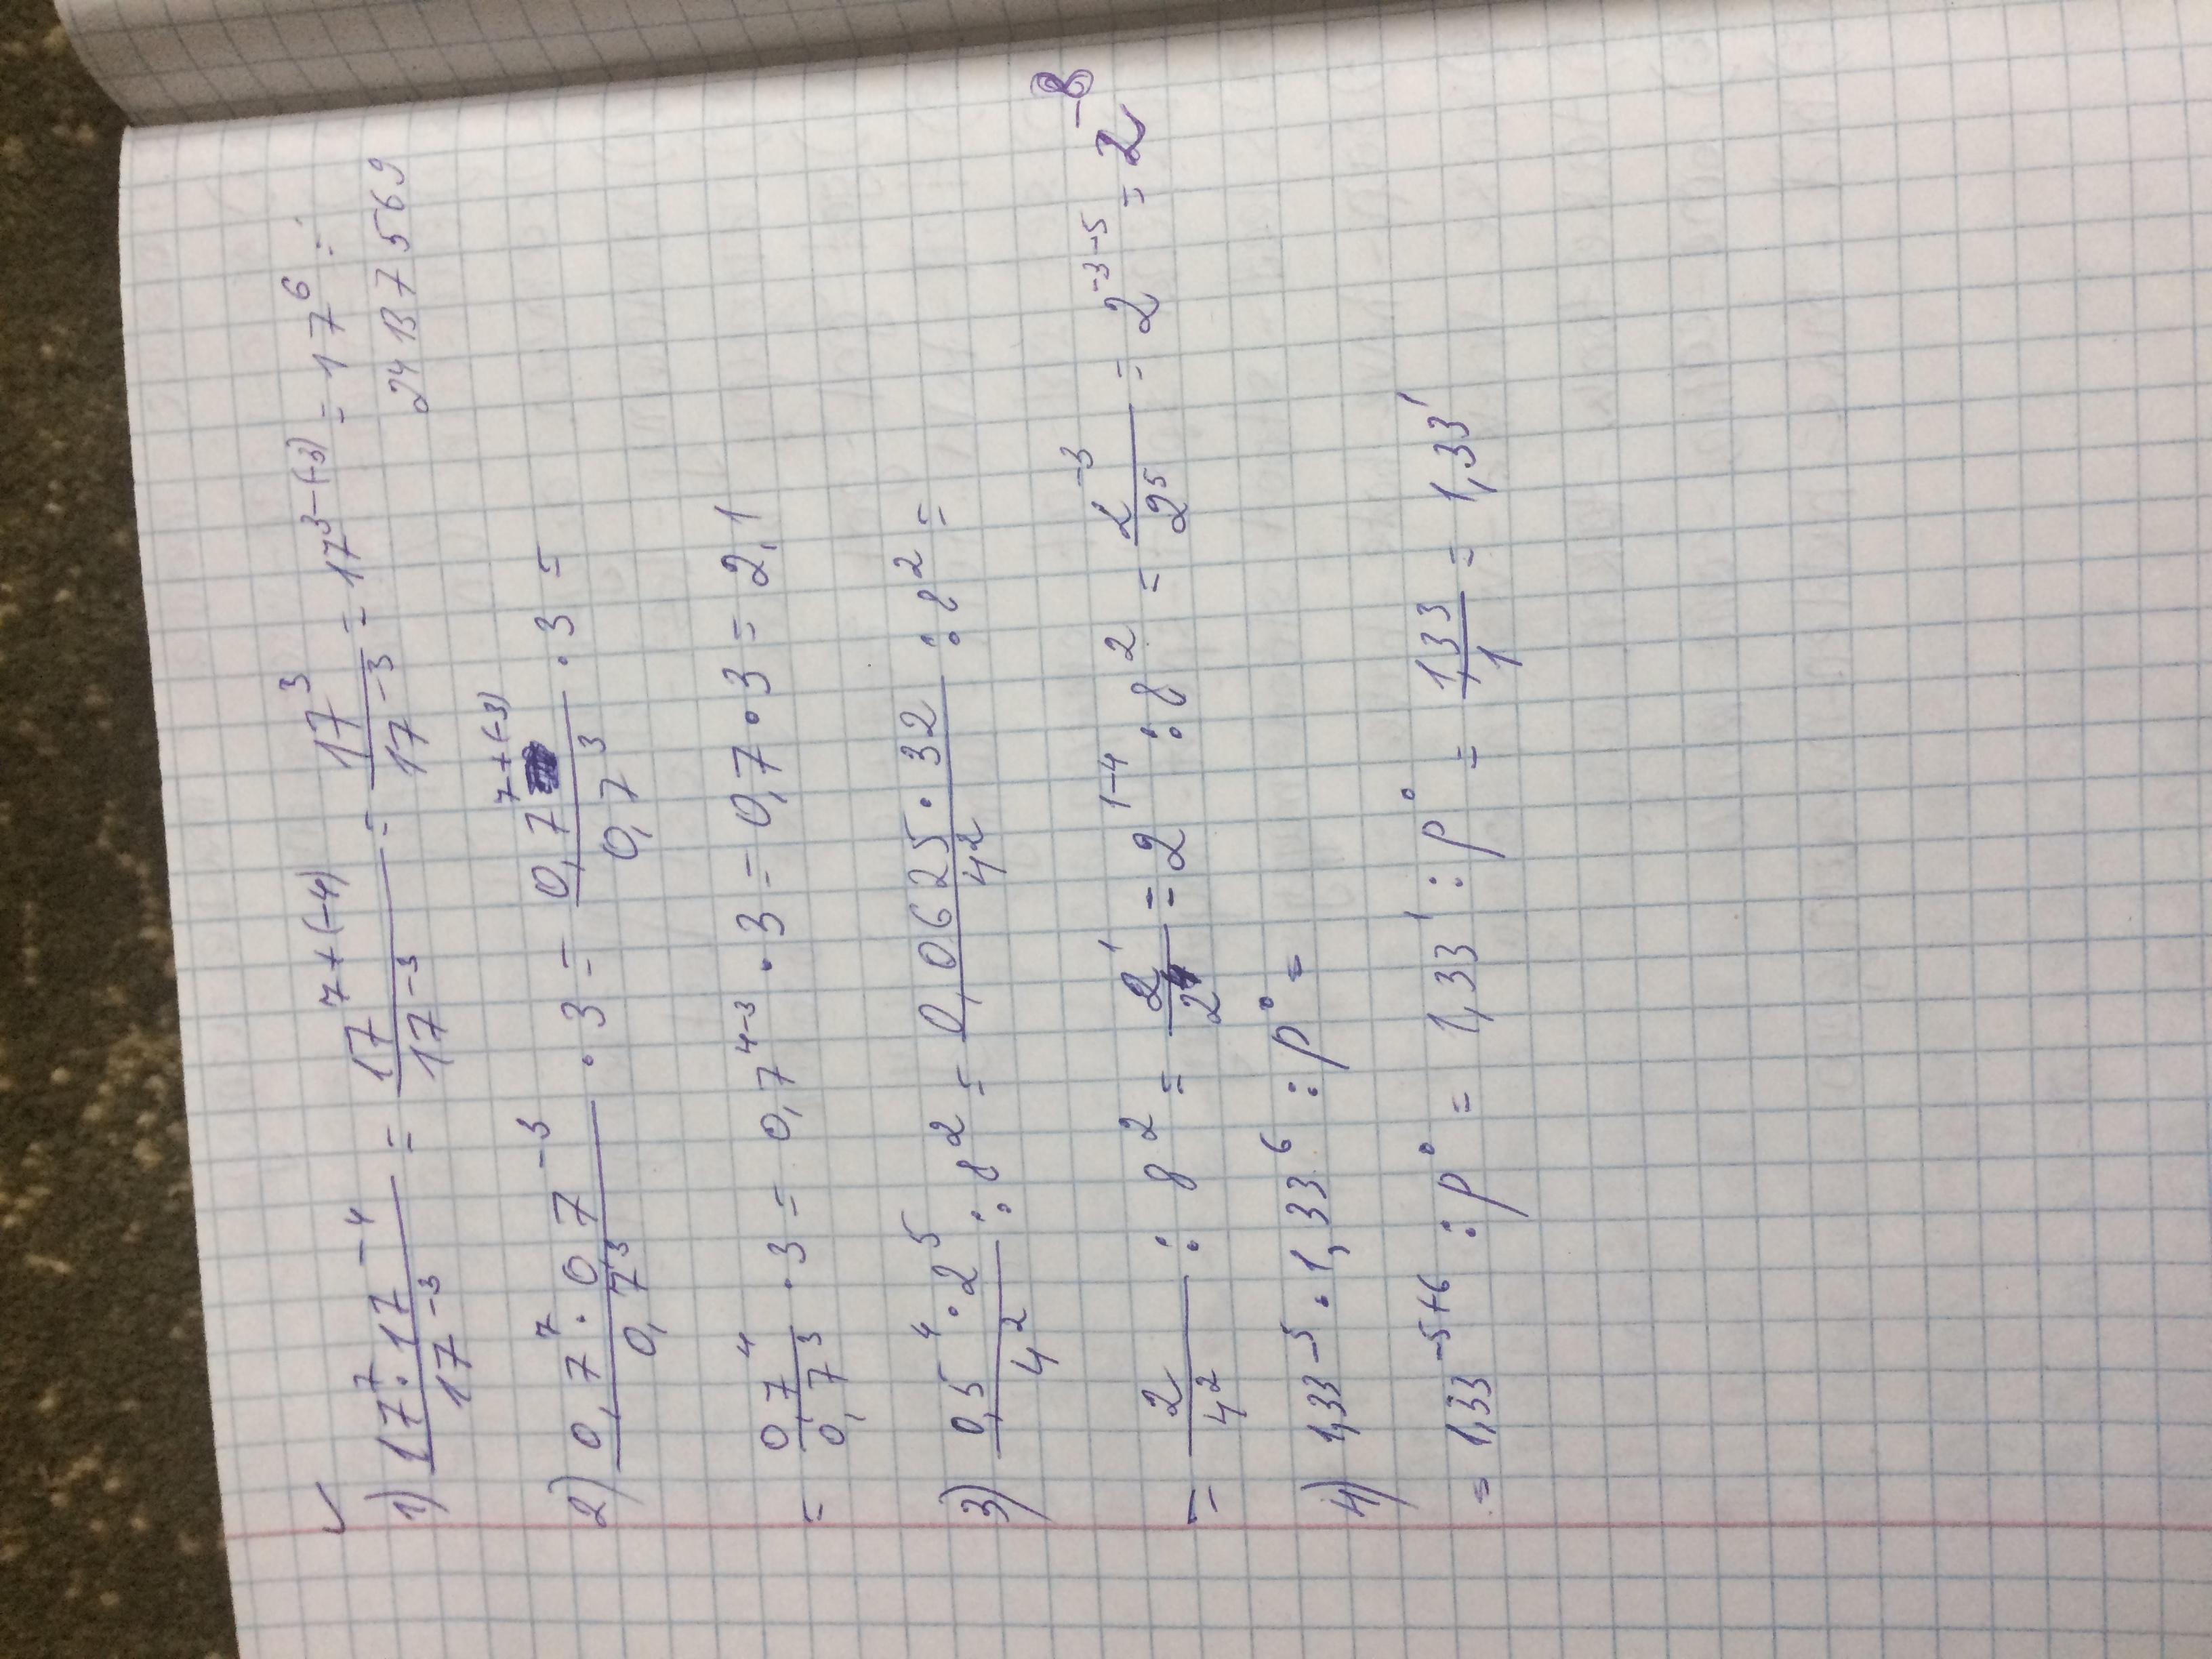 ✓
1) \frac{17^7 · 17^{-4}}{17^{-3}} = \frac{17^{7+(-4)}}{17^{-3}} = \frac{17^3}{17^{-3}} = 17^{3-(-3)} = 17^6 =
24137569
2) \frac{0,7^7 · 0,7^{-3}}{0,7^3} · 3 = \frac{0,7^{7+(-3)}}{0,7^3} · 3 =
= \frac{0,7^4}{0,7^3} · 3 = 0,7^{4-3} · 3 = 0,7 · 3 = 2,1
3) \frac{0,5^4 · 2^5}{4^2} : 8^2 = \frac{0,0625 · 32}{4^2} : 8^2 =
= \frac{2}{4^2} : 8^2 = \frac{2^1}{2^4} = 2^{1-4} : 8^2 = \frac{2^{-3}}{2^5} = 2^{-3-5} = 2^{-8}
4) 1,33^{-5} · 1,33^6 : p^0 =
= 1,33^{-5+6} : p^0 = 1,33^1 : p^0 = \frac{1,33}{1} = 1,33^1